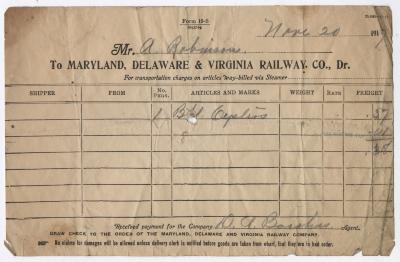 Form 19-S
Nov. 20 191
Mr. A. Robinson
To MARYLAND, DELAWARE & VIRGINIA RAILWAY. CO., Dr.
For transportation charges on articles way-billed via Steamer
SHIPPER FROM No. PKGS. ARTICLES AND MARKS WEIGHT RATE FREIGHT
1 Bbl .37
8
.38
Received payment for the Company, D. A. Agent.
DRAW CHECK TO THE ORDER OF THE MARYLAND, DELAWARE AND VIRGINIA RAILWAY COMPANY.
No claims for damages will be allowed unless delivery clerk is notified before goods are taken from wharf, that they are in bad order.